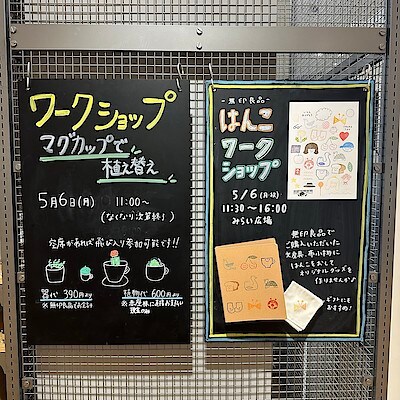 ワークショップ
マグカップで
植え替え
5月6日(月) 11:00〜
(なくなり次第終了)
空席があれば飛び入り参加可能です!!
器代 390円より
※無印良品でお会計
植物代 600円より
-無印良品-
はんこ
ワーク
ショップ
5/6(月・祝)
11:30〜16:00
みらい広場
無印良品で
ご購入いただいた
文房具、布小物に
はんこをおして
オリジナルグッズを
作りませんか♪
ギフトにも
おすすめ!